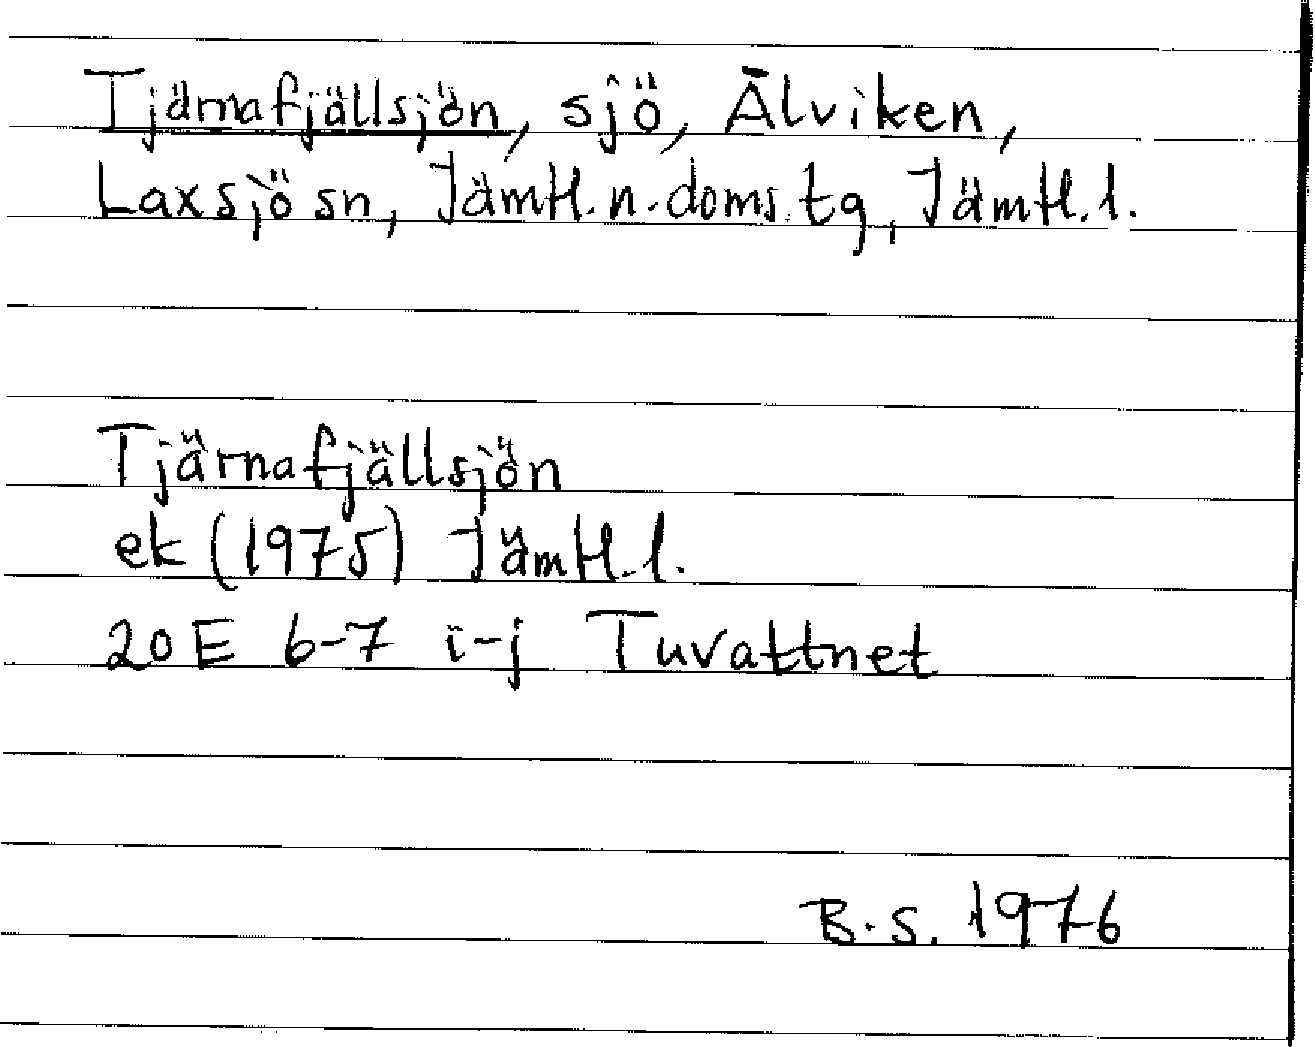 Tjärnafjällsjön, sjö, Älviken,
Laxsjö sn, Jämtl. n. doms. tg, Jämtl. l.
Tjärnafjällsjön
ek (1975) Jämtl. l.
20 E 6-7 i-j Tuvattnet
B.S. 1976